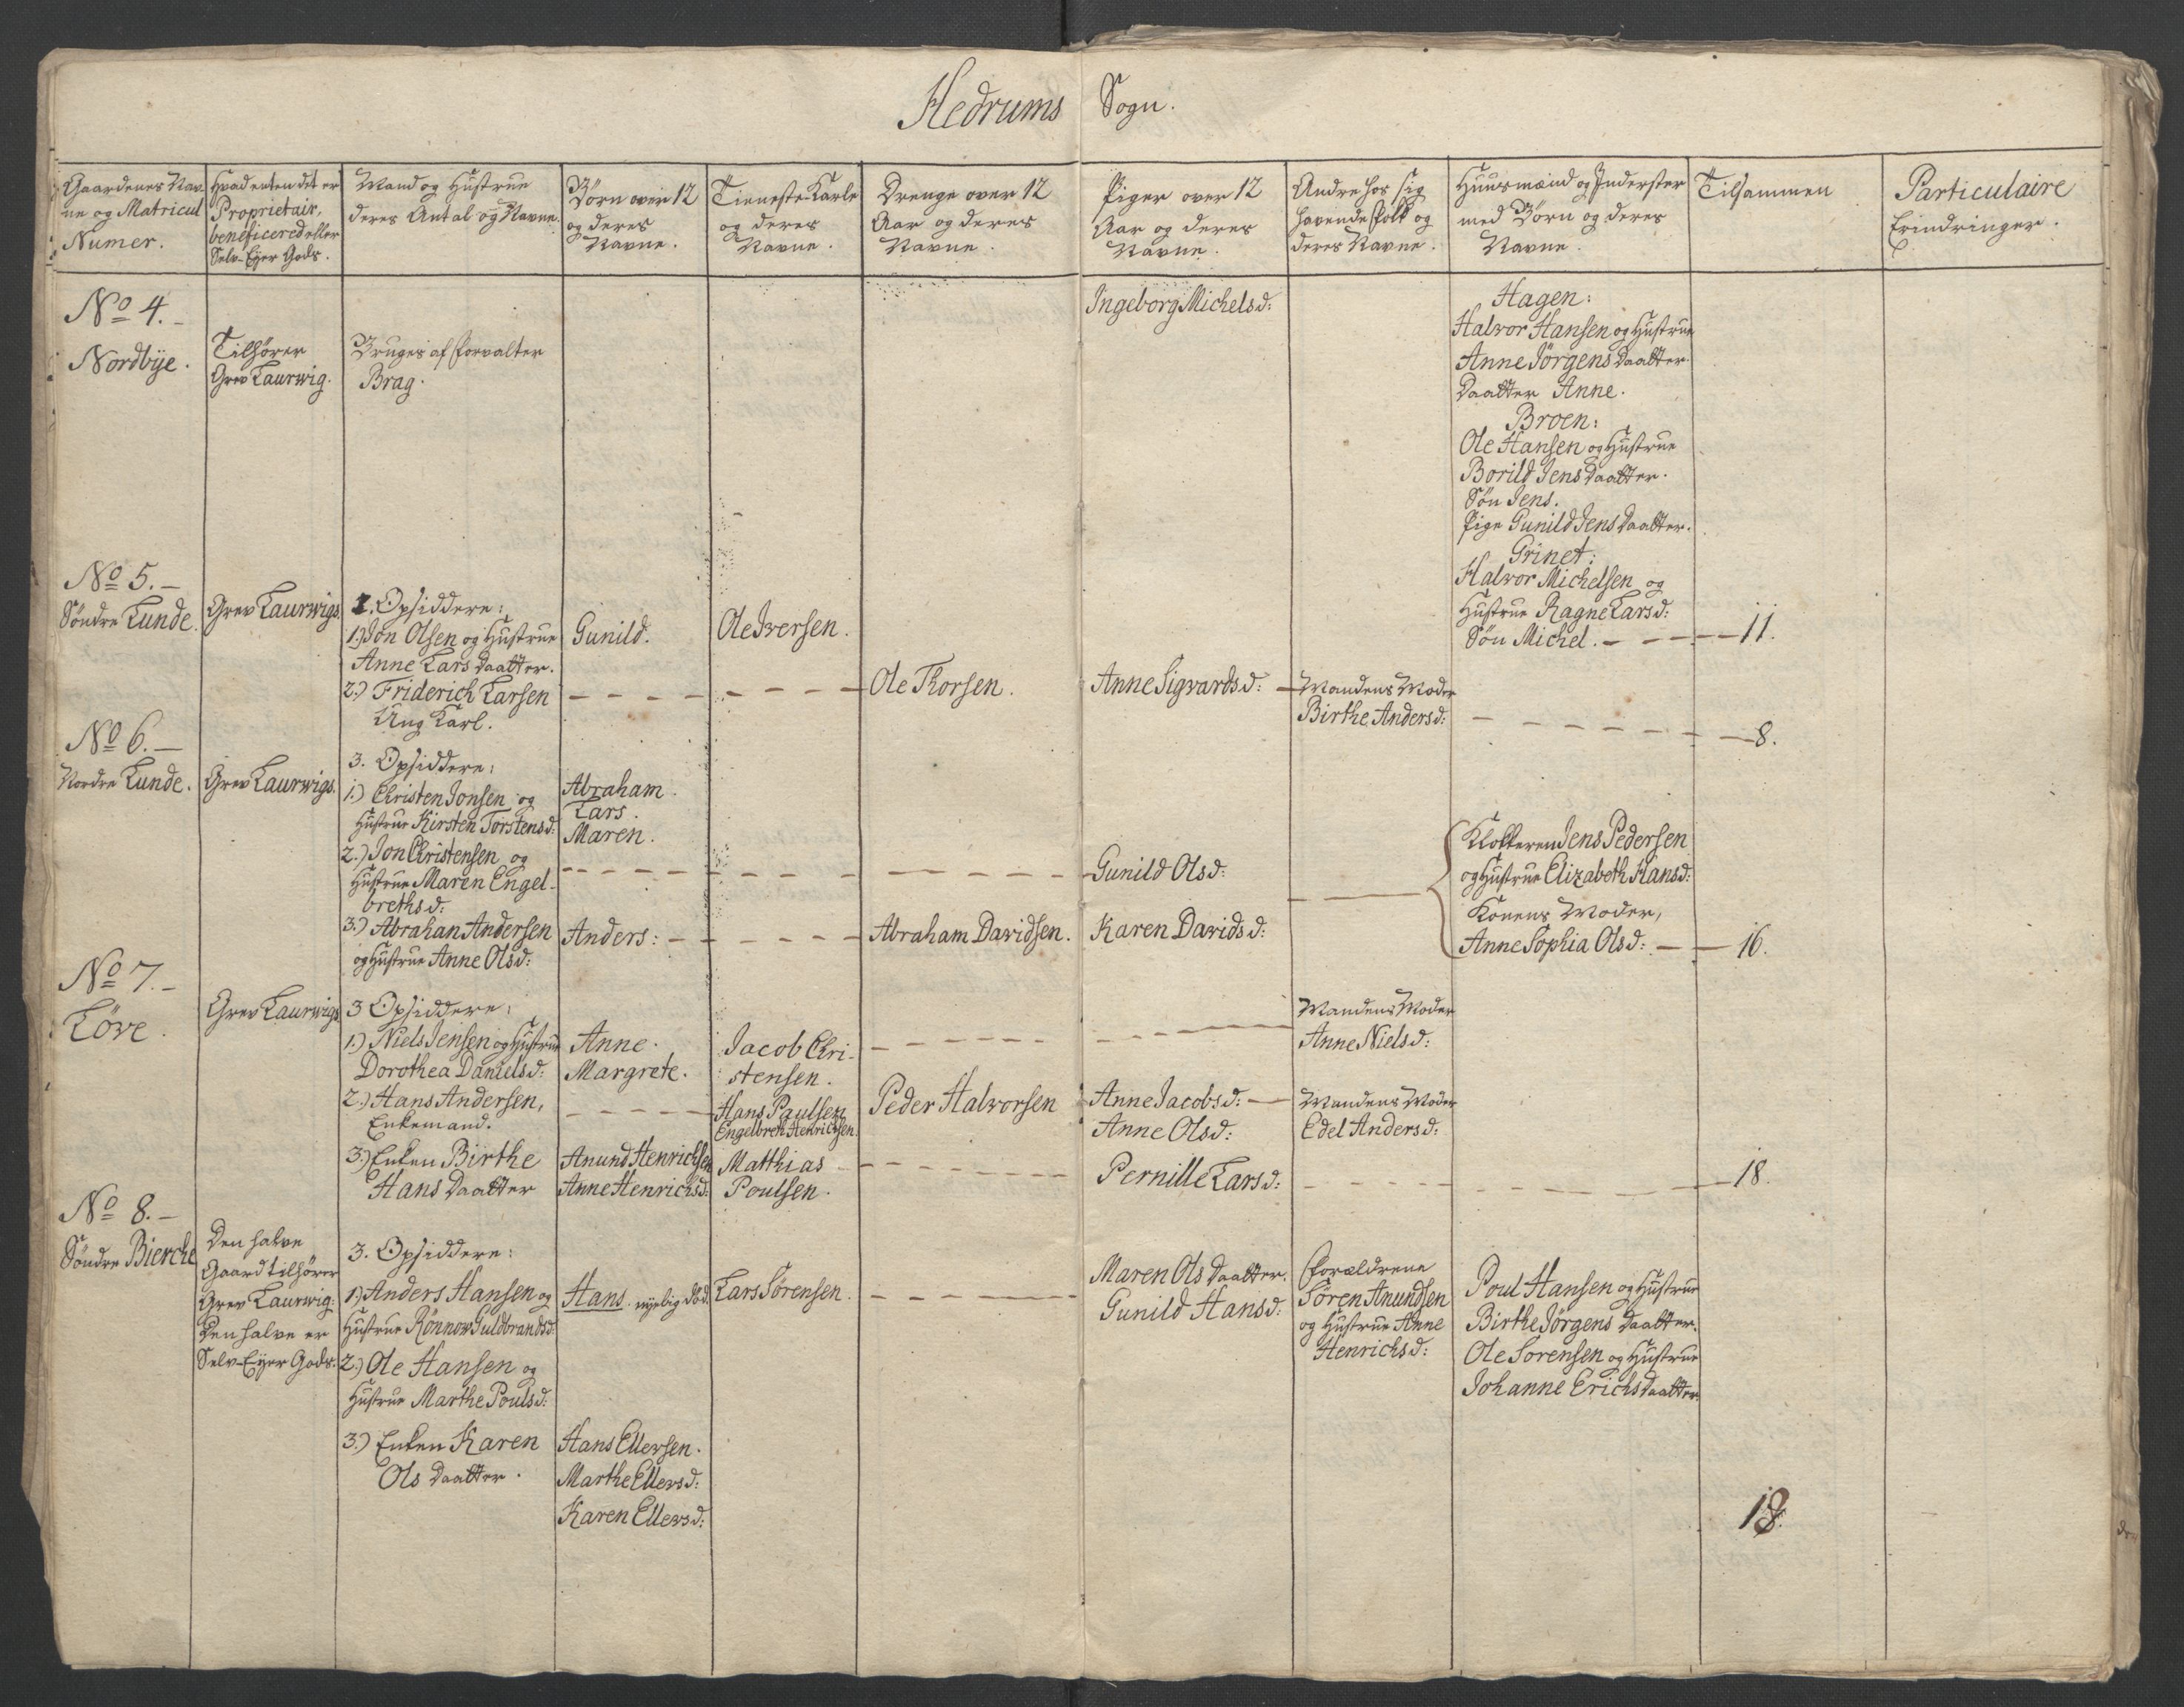 Hedrums Sogn.
Gaardenes Nav-
ne og Matricul
Numer.
Hvad enten det er
Proprietair,
beneficered eller
Selv-Eyer Gods.
Mand og Hustrue
deres Antal og Navne.
Børn over 12
og deres
Navne.
Tieneste Karle
og deres
Navne.
Drenge over 12
Aar og deres
Navne.
Piger over 12
Aar og deres
Navne.
Andre hos sig
havende Folk og
deres Navne.
Huusmænd og Inderster
med Børn og deres
Navne.
Tilsammen
Particulaire
Erindringer.
No 4.
Nordbye.
Tilhører
Grev Laurwig.
Bruges af Forvalter
Brag.
Ingeborg Michelsd:
Hagen:
Halvor Hansen og Hustrue
Anne Jörgens Daatter
Daatter Anne.
Broen:
Ole Hansen og Hustrue
Borild Jens Daatter.
Søn Jens.
Pige Gunild Jens Daatter.
Grinet:
Halvor Michelsen og
Hustrue Ragne Larsd:
Søn Michel. - - - 11.
No 5.
Söndre Lunde.
Grev Laurwigs.
2. Opsiddere:
1.) Jon Olsen og Hustrue
Anne Lars Daatter.
2.) Friderich Larsen
Ung Karl.
Gunild.
Ole Iversen.
Ole Thorsen.
Anne Sigvardsd:
Mandens Moder
Birthe Andersd:
8.
No 6.
Nordre Lunde.
Grev Laurwigs.
3. Opsiddere:
1.) Christen Jonsen og
Hustrue Kirsten Torstensd:
2.) Jon Christensen og
Hustrue Maren Engel-
brethsd:
3.) Abrahan Andersen
og Hustrue Anne Olsd:
Abraham.
Lars.
Maren.
Anders:
Abraham Davidsen.
Gunild Olsd:
Karen Davidsd:
Klokkeren Jens Pedersen
og Hustrue Elizabeth Hansd:
Konens Moder,
Anne Sophia Olsd: - - 16.
No 7.
Löve.
Grev Laurwigs
3 Opsiddere:
1.) Niels Jensen og Hustrue
Dorothea Danielsd:
2.) Hans Andersen,
Enkemand.
3.) Enken Birthe
Hans Daatter
Anne.
Margrete.
Anund Henrichsen
Anne Henrichsd:
Jacob Chri-
stensen.
Hans Paulsen
Engelbreth Henrichsen.
Matthias
Poulsen.
Peder Halvorsen
Anne Jacobsd:
Anne Olsd:
Pernille Larsd:
Mandens Moder
Anne Nielsd:
Mandens Moder
Edel Andersd:
18.
No 8.
Söndre Bierche
Den halve
Gaard tilhører
Grev Laurwig:
Den halve er
Selv-Eyer Gods.
3. Opsiddere:
1.) Anders Hansen og
Hustrue Rönnow Guldbrandsd:
2.) Ole Hansen og
Hustrue Marthe Poulsd:
3.) Enken Karen
Ols Daatter.
Hans nyelig död.
Hans Ellersen.
Marthe Ellersd:
Karen Ellersd:
Lars Sörensen.
Maren Ols Daatter.
Gunild Hansd:
Forældrene
Sören Anundsen
og Hustrue Anne
Henrichsd:
Poul Hansen og Hustrue
Birthe Jörgens Daatter.
Ole Sorensen og Hustrue
Johanne Erichs Daatter.
18.